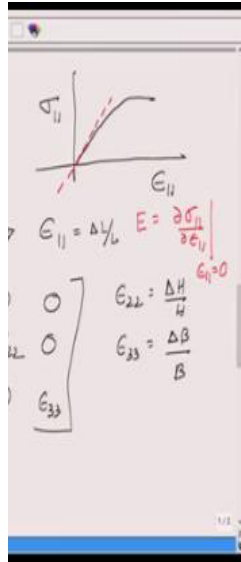 σ₁₁
ϵ₁₁
ϵ₁₁ = ΔL/L E = ∂σ₁₁/∂ϵ₁₁ |ϵ₁₁=0
0 ϵ₂₂ = ΔH/H
22 0 ϵ₃₃ = ΔB/B
ϵ₃₃
1/2